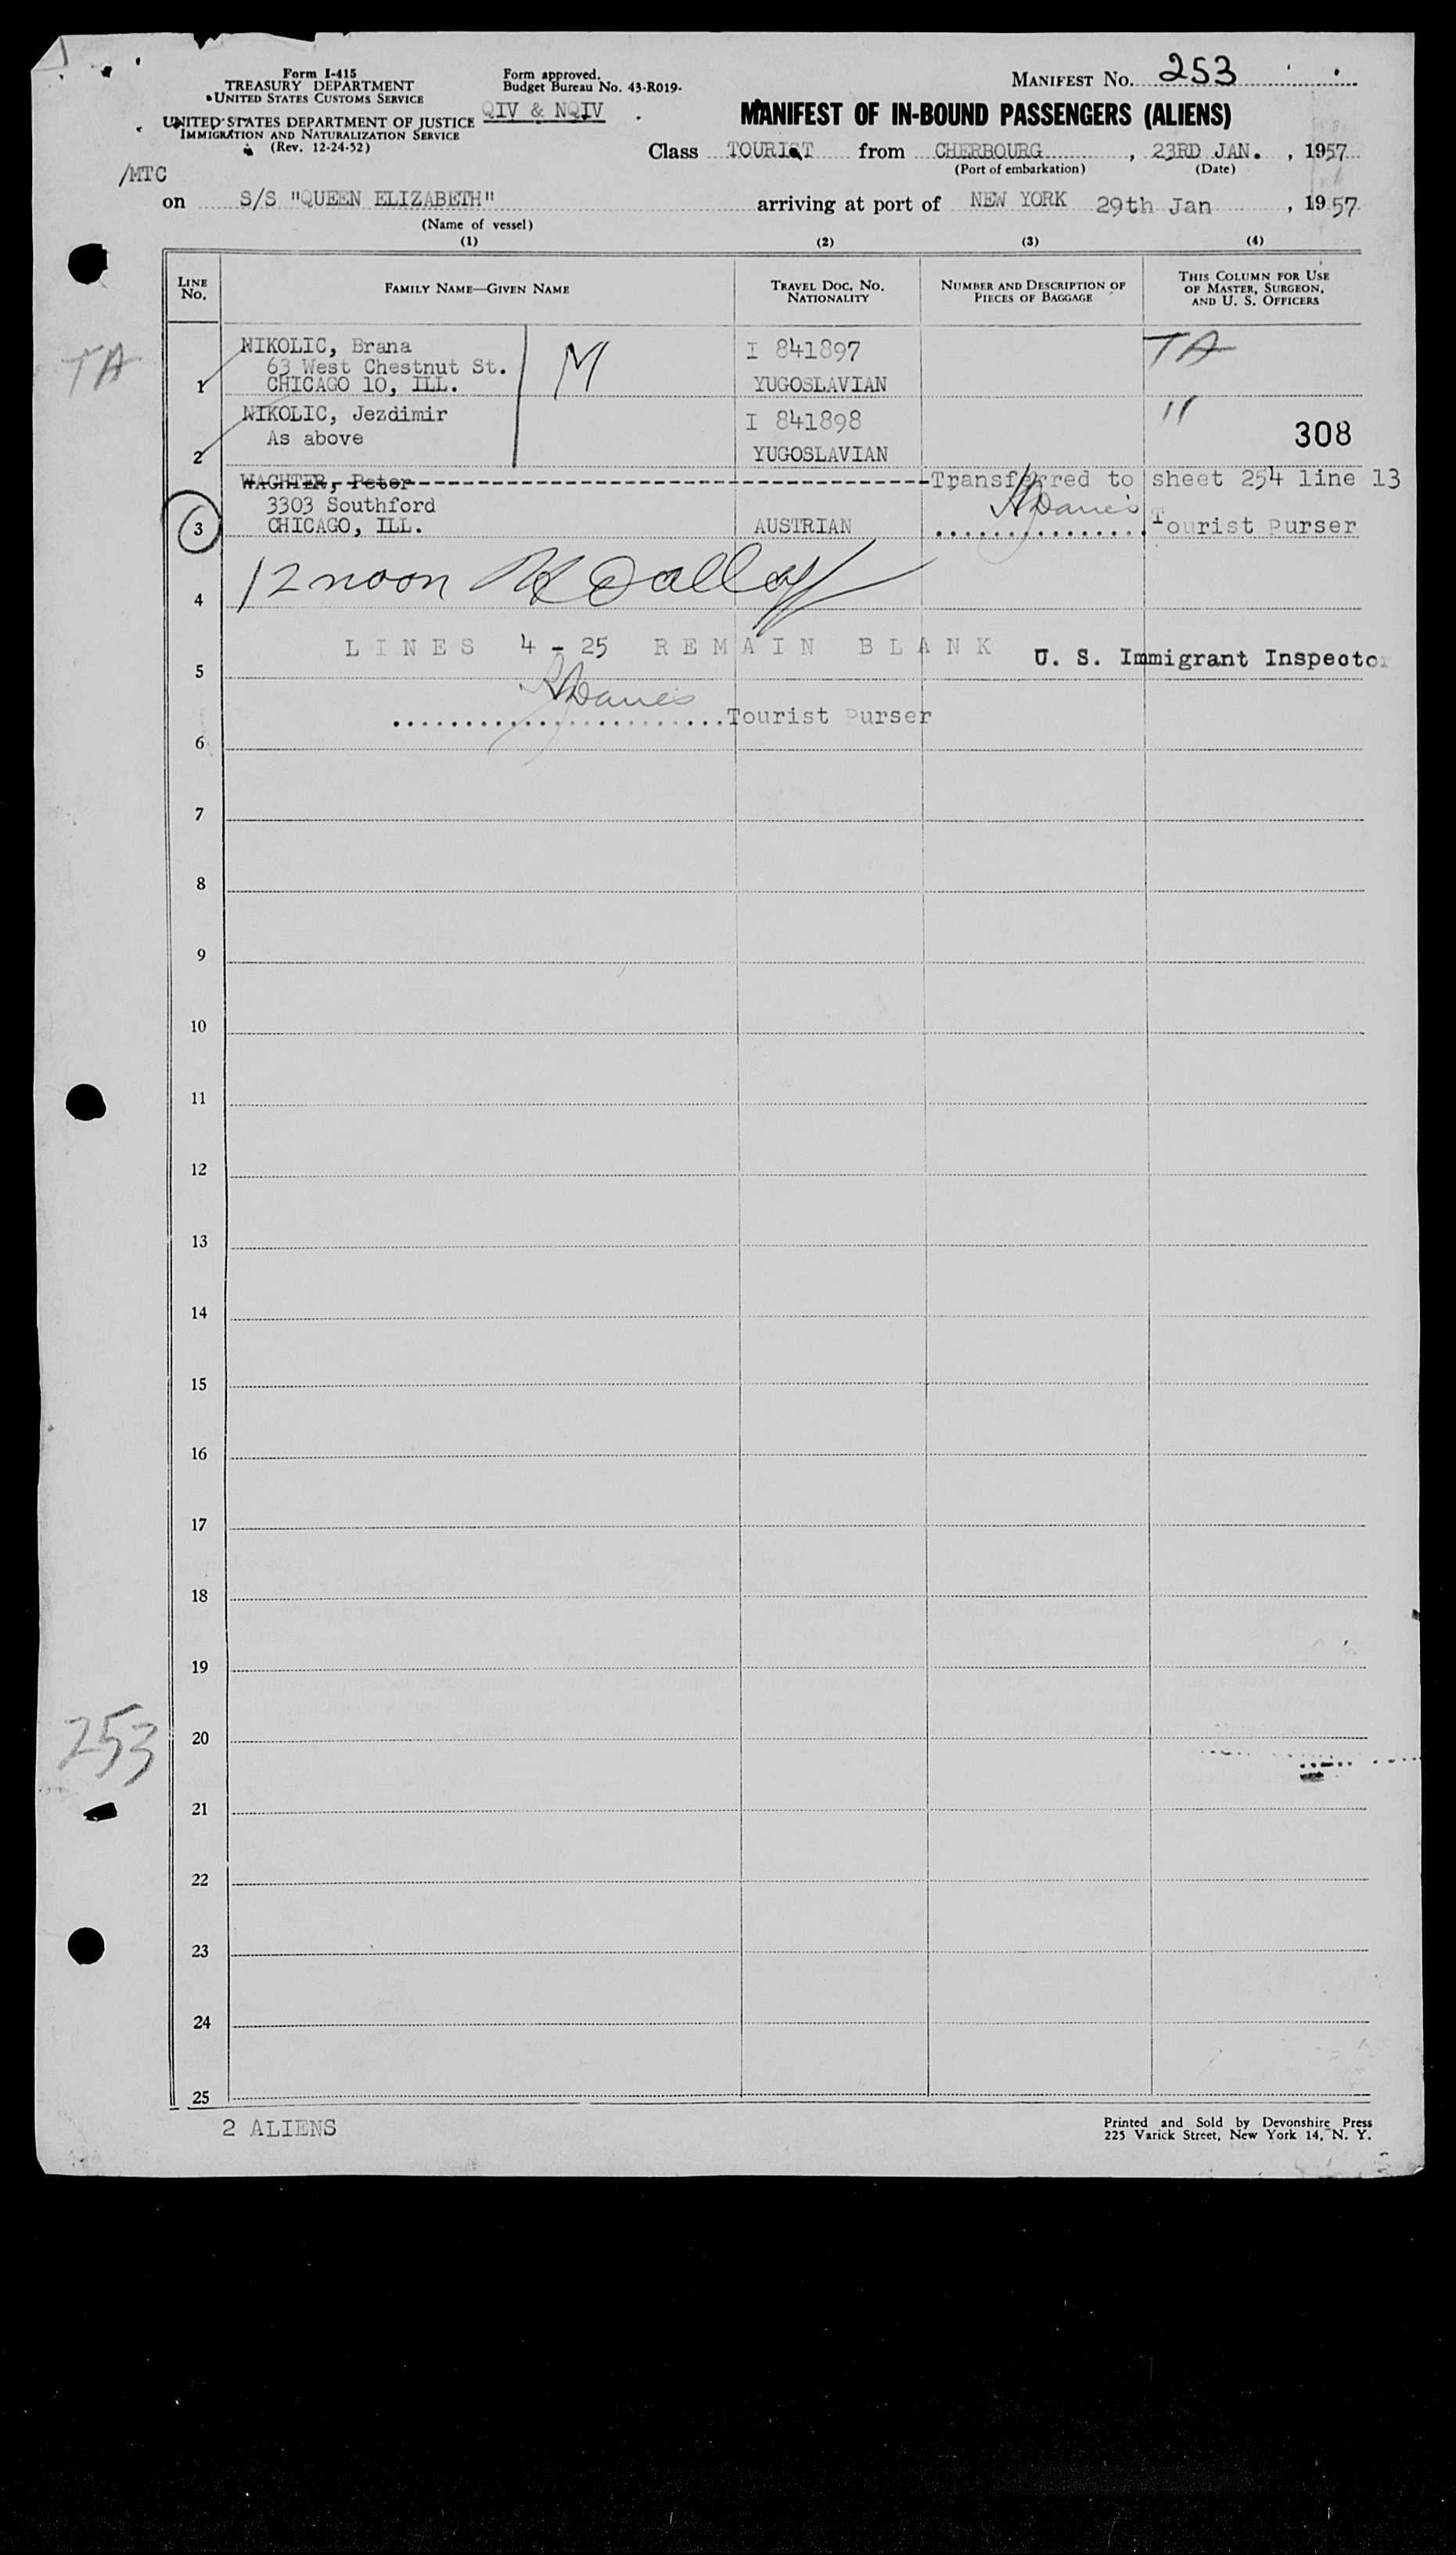 Form I-415
TREASURY DEPARTMENT
UNITED STATES CUSTOMS SERVICE
UNITED STATES DEPARTMENT OF JUSTICE
IMMIGRATION AND NATURALIZATION SERVICE
(Rev. 12-24-52)
Form approved.
Budget Bureau No. 43-R019.
QIV & NQIV
MANIFEST No. 253
MANIFEST OF IN-BOUND PASSENGERS (ALIENS)
Class TOURIST from CHERBOURG, 23RD JAN., 1957
(Port of embarkation) (Date)
/MTC
on S/S "QUEEN ELIZABETH" arriving at port of NEW YORK 29th Jan, 1957
(Name of vessel)
(1) (2) (3) (4)
LINE No. FAMILY NAME—GIVEN NAME TRAVEL DOC. NO. NATIONALITY NUMBER AND DESCRIPTION OF PIECES OF BAGGAGE THIS COLUMN FOR USE OF MASTER, SURGEON, AND U. S. OFFICERS
NIKOLIC, Brana M I 841897 TA
TA
63 West Chestnut St.
1 CHICAGO 10, ILL. YUGOSLAVIAN
NIKOLIC, Jezdimir I 841898 "
As above 308
2 YUGOSLAVIAN
WACHTER, Peter------------------------------------Transferred to sheet 254 line 13
3303 Southford
3 CHICAGO, ILL. AUSTRIAN ............... Tourist Purser
12 noon
4
LINES 4 - 25 REMAIN BLANK
U. S. Immigrant Inspector
5
.......................Tourist Purser
6
7
8
9
10
11
12
13
14
15
16
17
18
19
253
20
21
22
23
24
25
2 ALIENS
Printed and Sold by Devonshire Press
225 Varick Street, New York 14, N. Y.